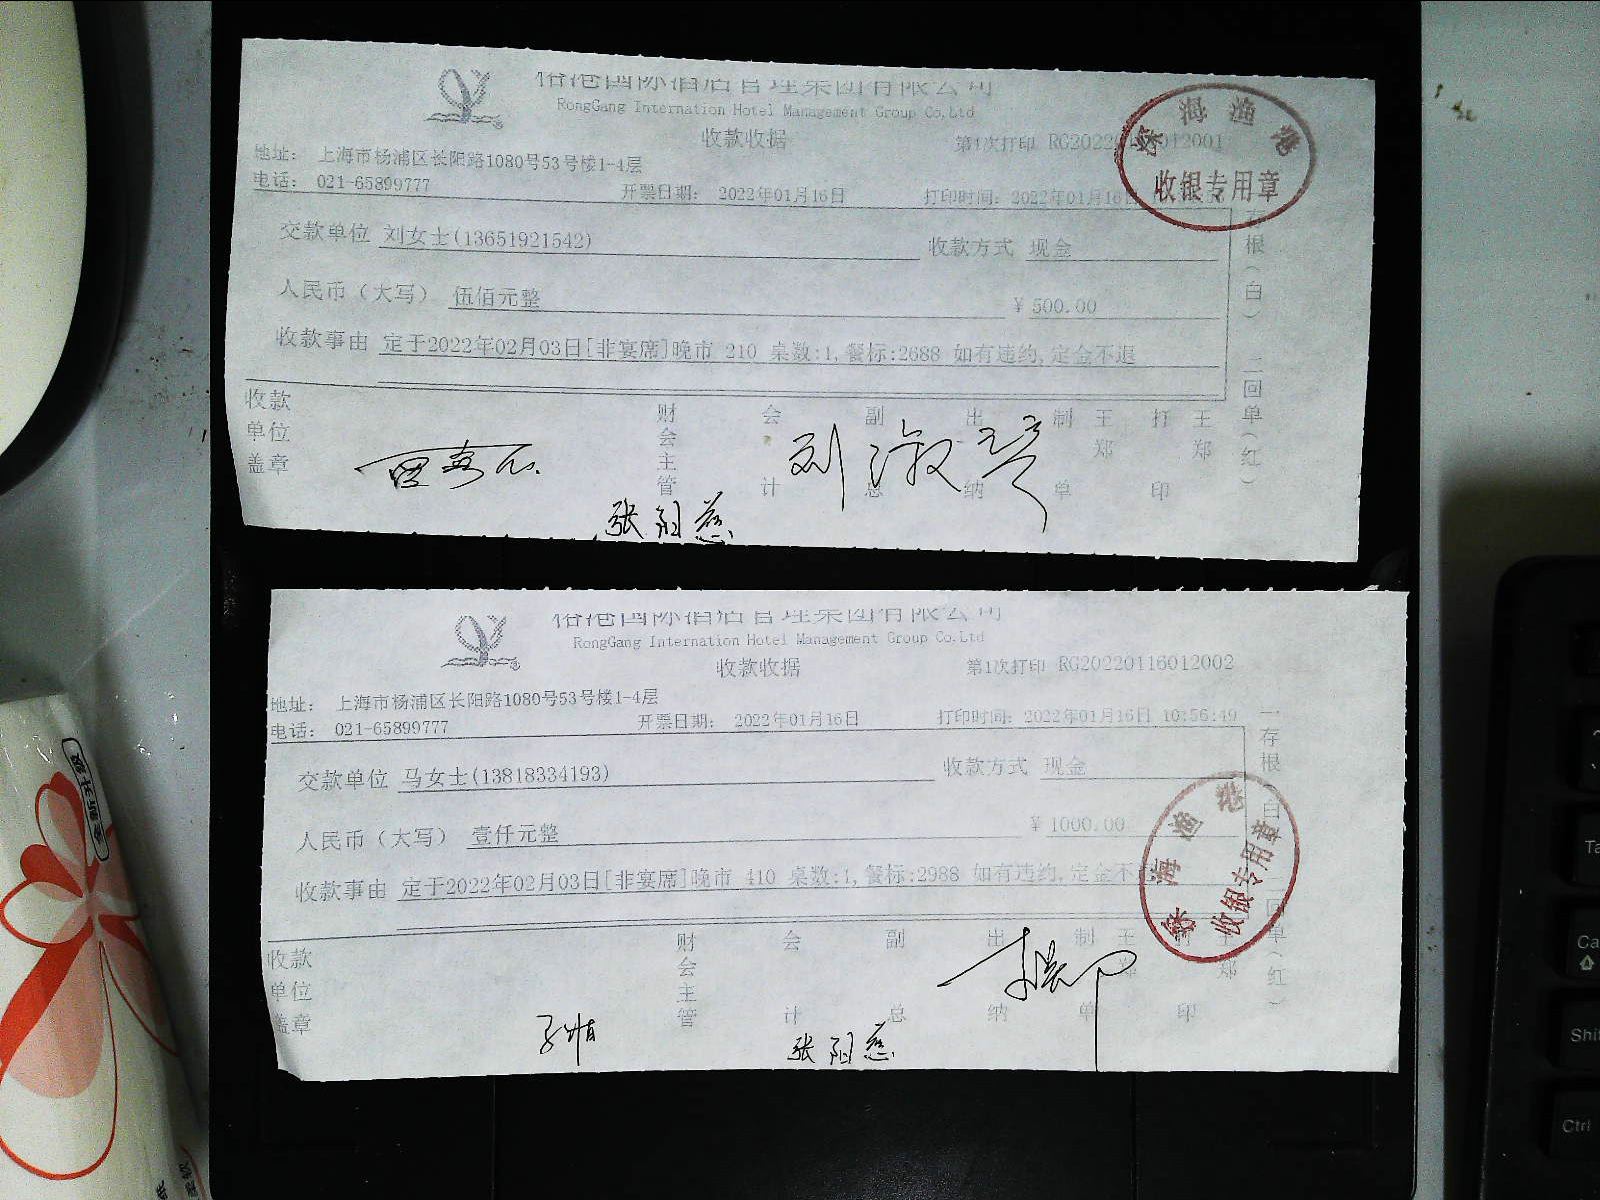 国际酒店管理集团有限公司
RongGang Internation Hotel Management Group Co.Ltd
收款收据
第1次打印
地址： 上海市杨浦区长阳路1080号53号楼1-4层
电话： 021-65899777
开票日期： 2022年01月16日
打印时间：2022年01月16日
深海渔港
收银专用章
交款单位 刘女士(13651921542)
收款方式 现金
人民币（大写） 伍佰元整
￥500.00
收款事由 定于2022年02月03日[非宴席]晚市 210 桌数:1,餐标:2688 如有违约,定金不退
存根（白） 二回单（红）
收款单位盖章
财会主管
会计
副总
出纳
制单
王郑
打印
王郑
刘淑
张阳慈
国际酒店管理集团有限公司
RongGang Internation Hotel Management Group Co.Ltd
收款收据
第1次打印 RG20220116012002
地址： 上海市杨浦区长阳路1080号53号楼1-4层
电话： 021-65899777
开票日期： 2022年01月16日
打印时间：2022年01月16日 10:56:49
交款单位 马女士(13818334193)
收款方式 现金
人民币（大写） 壹仟元整
￥1000.00
收款事由 定于2022年02月03日[非宴席]晚市 410 桌数:1,餐标:2988 如有违约,定金不
深海渔港
收银专用章
一存根 白 回单（红）
收款单位盖章
财会主管
会计
副总
出纳
制单
王郑
打印
王郑
张阳慈
全新升级
Ta
Ca
Shi
Ctrl